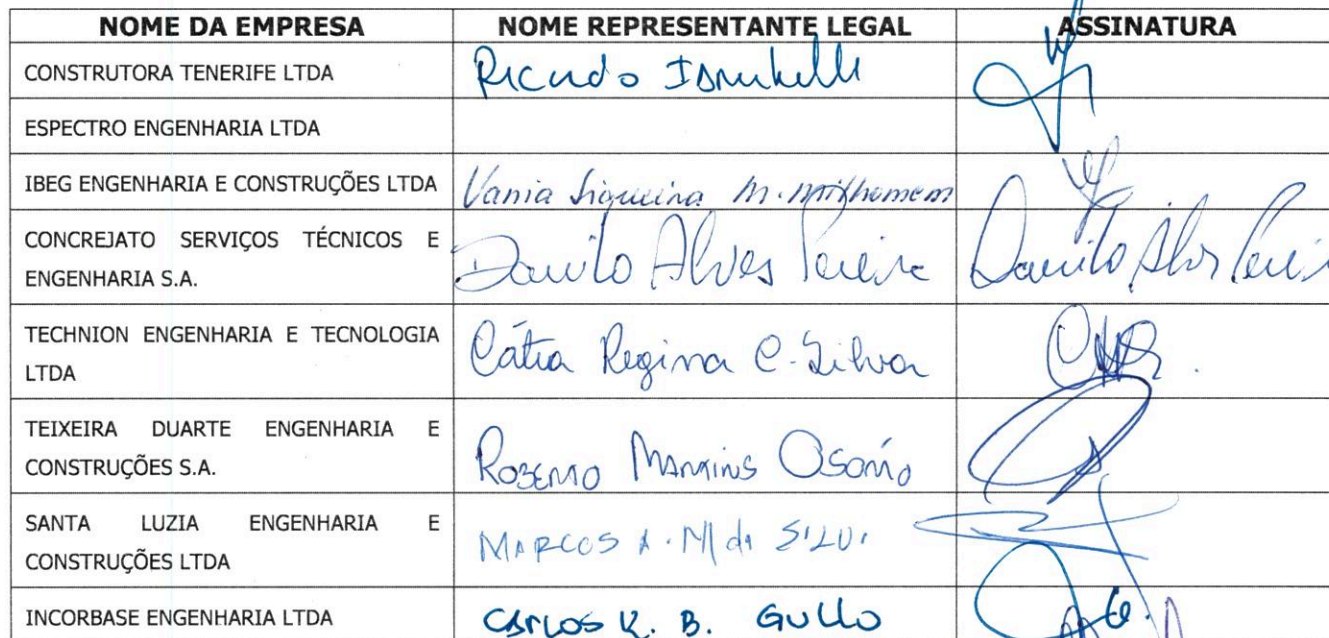 NOME DA EMPRESA NOME REPRESENTANTE LEGAL ASSINATURA
CONSTRUTORA TENERIFE LTDA Ricardo
ESPECTRO ENGENHARIA LTDA
IBEG ENGENHARIA E CONSTRUÇÕES LTDA Vania Siqueira M. Milhomem
CONCREJATO SERVIÇOS TÉCNICOS E
ENGENHARIA S.A. Danilo Alves Pereira Danilo Alves Perei
TECHNION ENGENHARIA E TECNOLOGIA
LTDA Cátia Regina C. Silva
TEIXEIRA DUARTE ENGENHARIA E
CONSTRUÇÕES S.A. Roberto Martins Osório
SANTA LUZIA ENGENHARIA E
CONSTRUÇÕES LTDA MARCOS A. M da SILVA
INCORBASE ENGENHARIA LTDA CARLOS K. B. GULLO